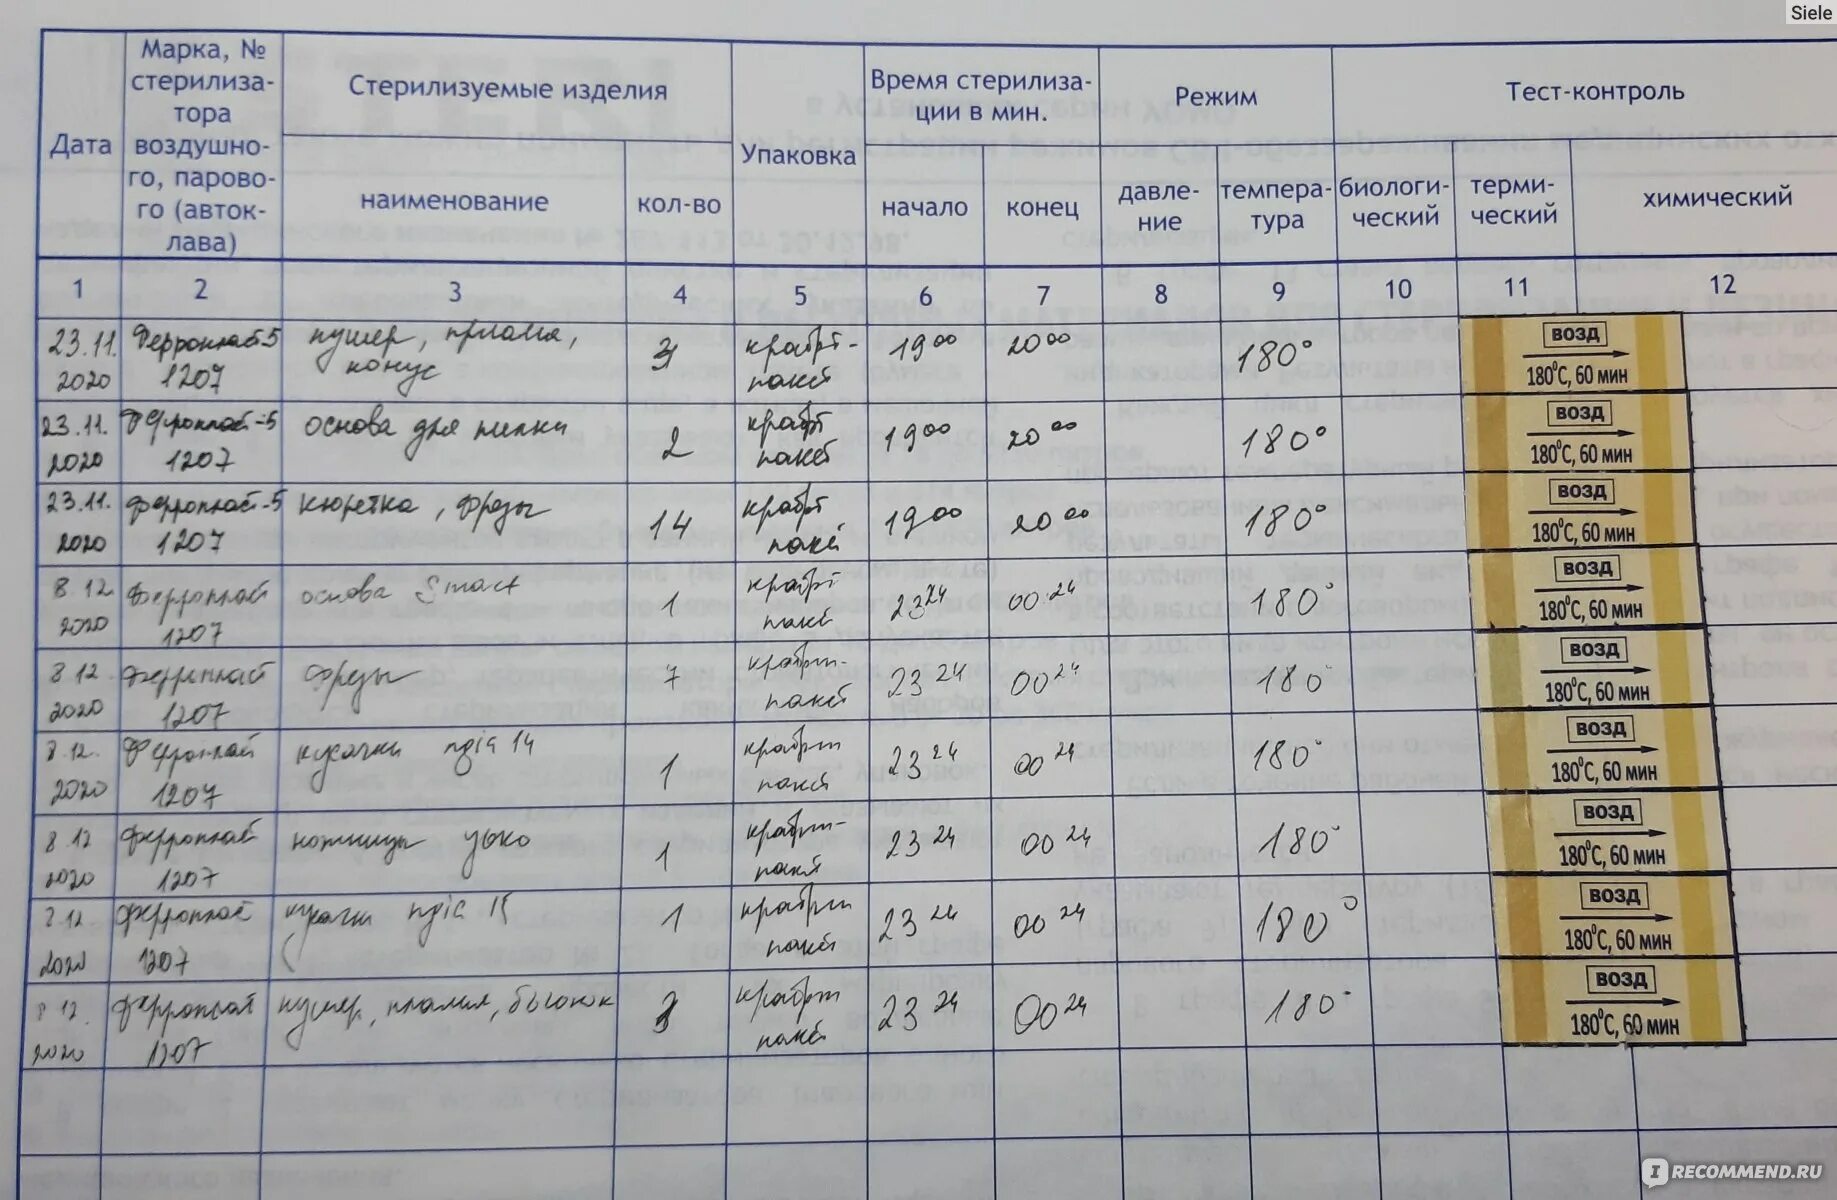 Siele
Дата
Марка, №
стерилиза-
тора
воздушно-
го, парово-
го (авток-
лава)
Стерилизуемые изделия
наименование
кол-во
Упаковка
Время стерилиза-
ции в мин.
начало
конец
Режим
давле-
ние
темпера-
тура
Тест-контроль
биологи-
ческий
терми-
ческий
химический
1 2 3 4 5 6 7 8 9 10 11 12
23.11. Ферропласт-5 пушер, пламя, 3 крафт- 19 00 20 00 180° ВОЗД
2020 1207 конус пакет 180°С, 60 мин
23.11. Ферропласт-5 основа для пилки 2 крафт 19 00 20 00 180° ВОЗД
2020 1207 пакет 180°С, 60 мин
23.11. Ферропласт-5 кюретка, фрезы 14 крафт 19 00 20 00 180° ВОЗД
2020 1207 пакет 180°С, 60 мин
8.12 Ферропласт основа Smart 1 крафт 23 24 00 24 180° ВОЗД
2020 1207 пакет 180°С, 60 мин
8.12 Ферропласт фрезы 7 крафт- 23 24 00 24 180° ВОЗД
2020 1207 пакет 180°С, 60 мин
8.12. Ферропласт кусачки 14 1 крафт 23 24 00 24 180° ВОЗД
2020 1207 пакет 180°С, 60 мин
8.12 Ферропласт ножницы 1 крафт- 23 24 00 24 180° ВОЗД
2020 1207 пакет 180°С, 60 мин
8.12 Ферропласт кусачки 1 крафт 23 24 00 24 180° ВОЗД
2020 1207 пакет 180°С, 60 мин
8.12. Ферропласт пушер, пламя, 3 крафт 23 24 00 24 180° ВОЗД
2020 1207 пакет 180°С, 60 мин
IRECOMMEND.RU